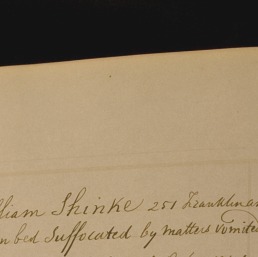 lliam Shinke 251 Franklin a
n bed Suffocated by matters vomite